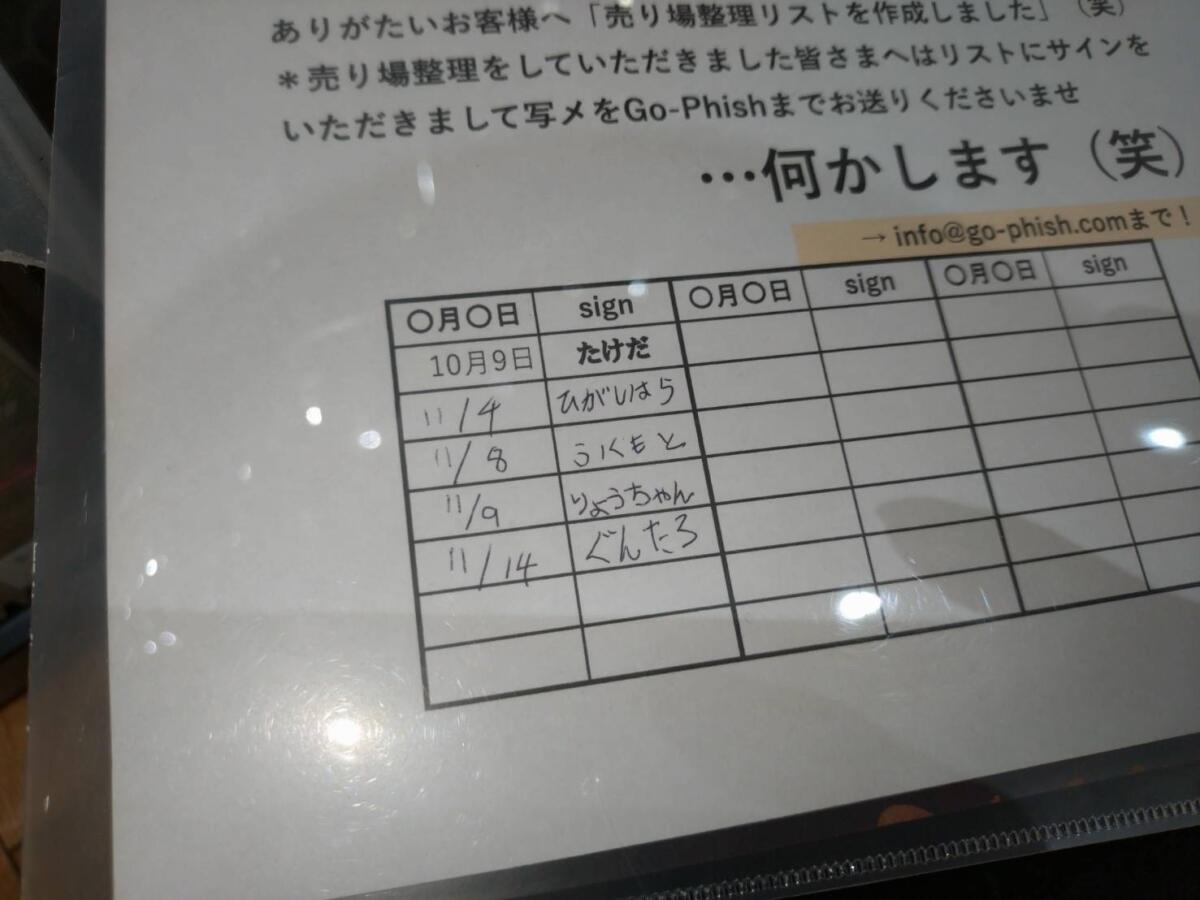 ありがたいお客様へ「売り場整理リストを作成しました」(笑)
*売り場整理をしていただきました皆さまへはリストにサインを
いただきまして写メをGo-Phishまでお送りくださいませ
…何かします(笑)
→ info@go-phish.comまで!
〇月〇日 sign 〇月〇日 sign 〇月〇日 sign
10月9日 たけだ
11/4 ひがしはら
11/8 ふくもと
11/9 りょうちゃん
11/14 ぐんたろ